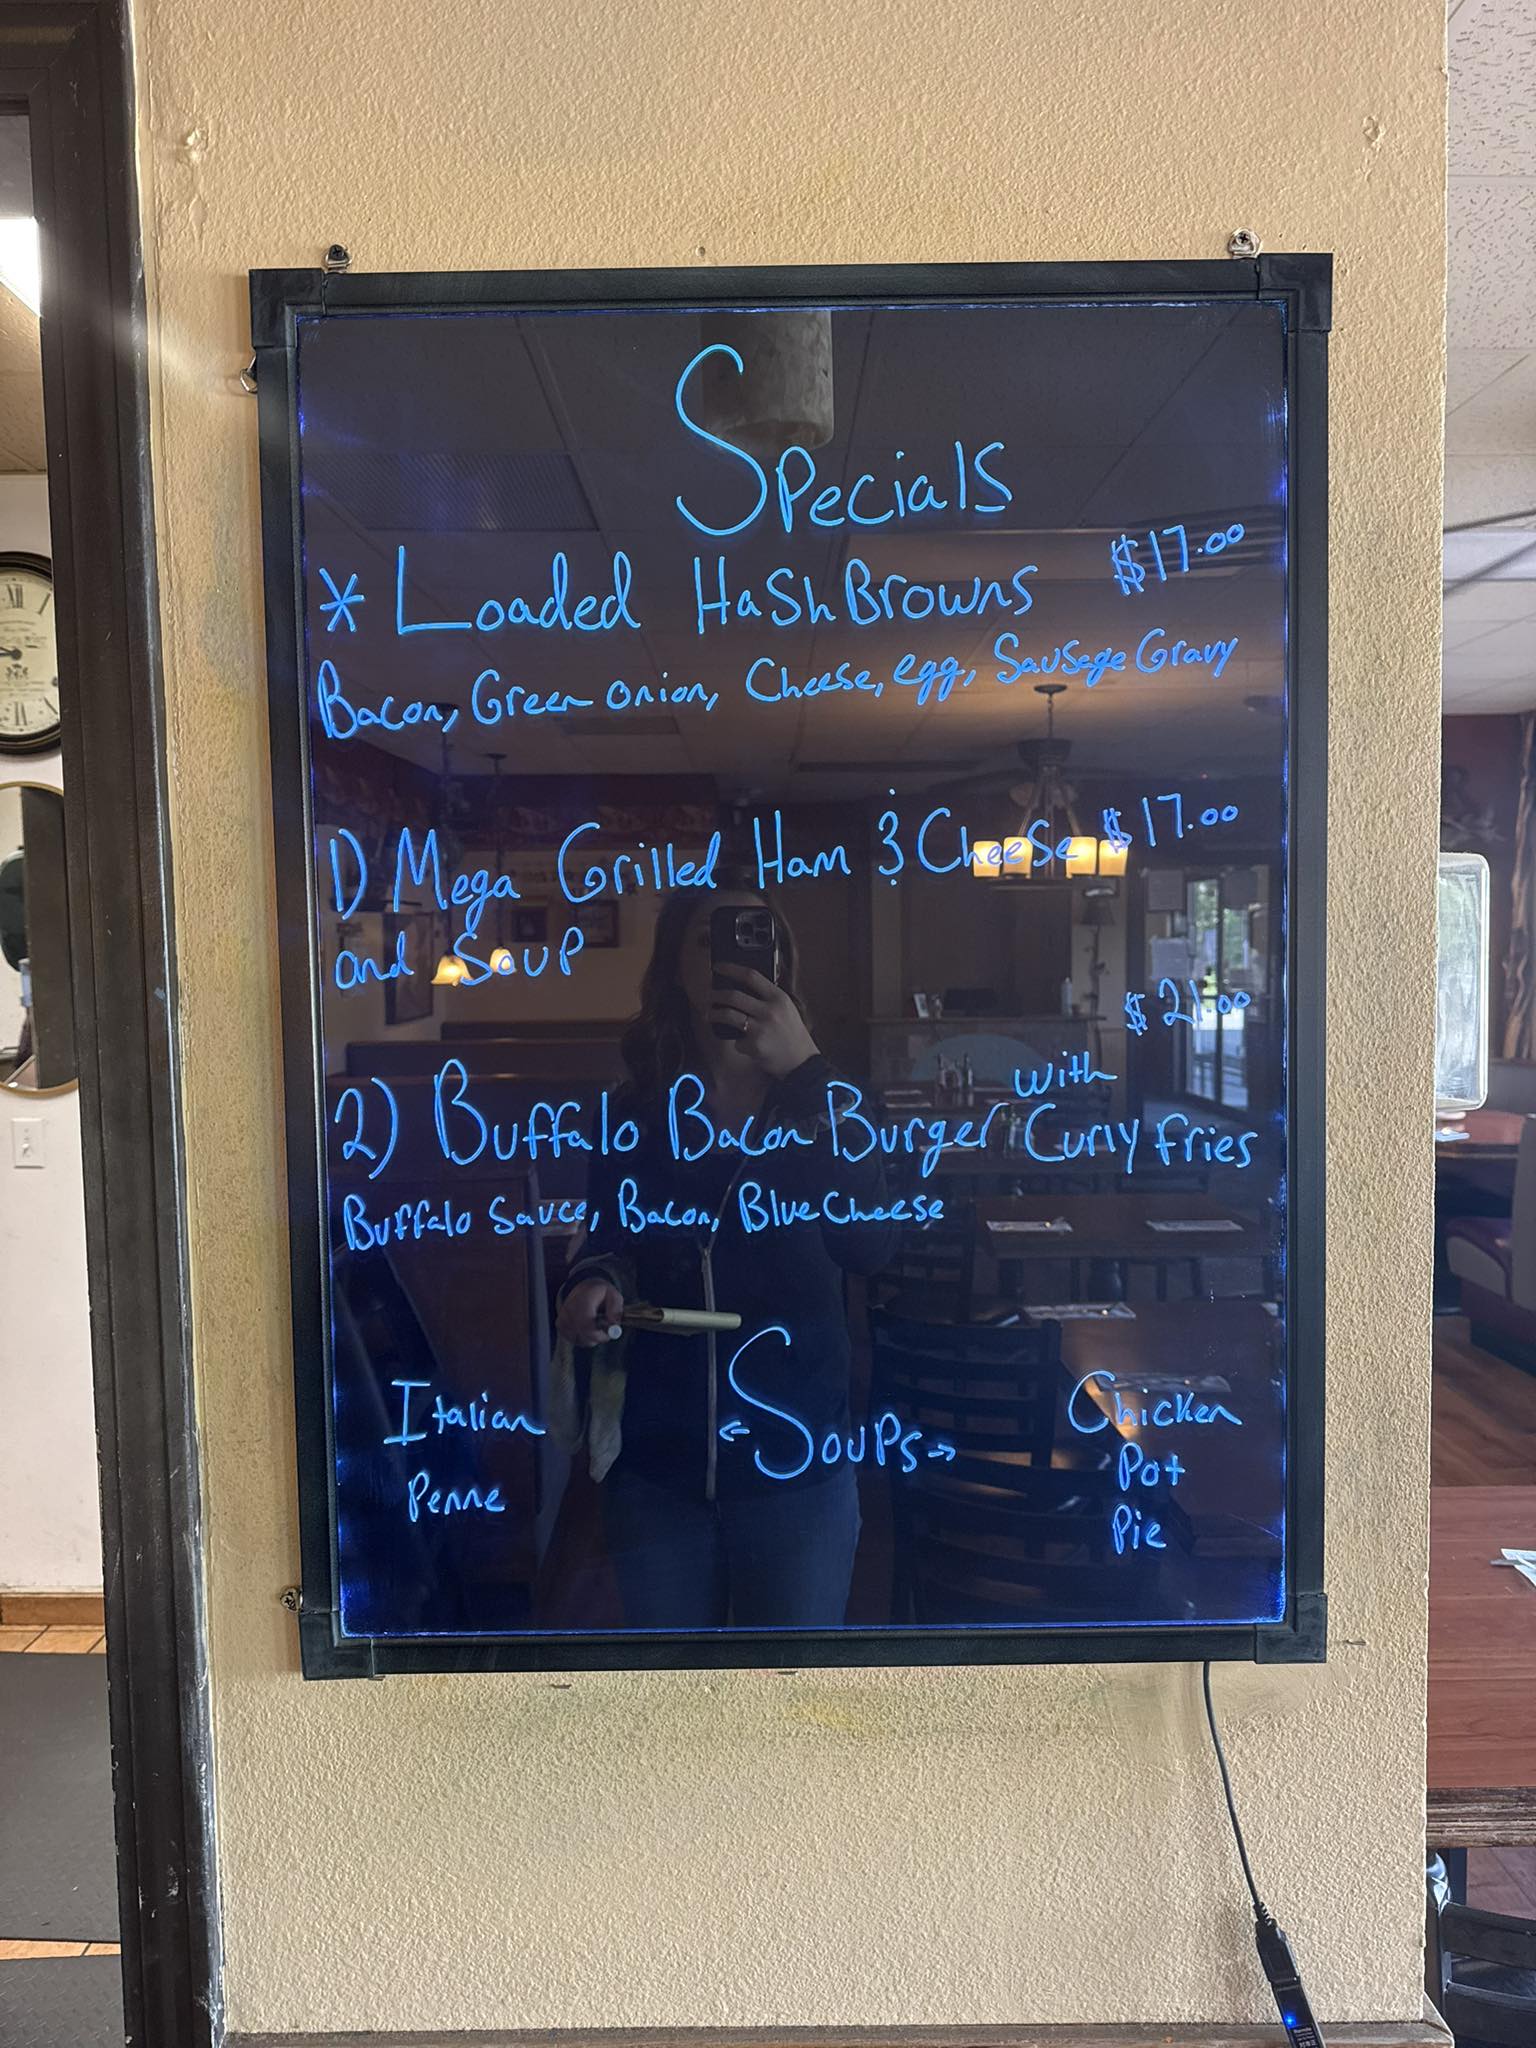 Specials
* Loaded HashBrowns $17.00
Bacon, Green onion, Cheese, egg, Sausage Gravy
1) Mega Grilled Ham & Cheese $17.00
and Soup
$21.00
2) Buffalo Bacon Burger with Curly fries
Buffalo Sauce, Bacon, Blue Cheese
Italian
Penne
← Soups →
Chicken
Pot
Pie